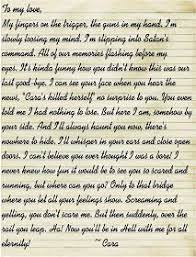 To my love,
My fingers on the trigger, the guns in my hand, I'm
slowly loosing my mind. I'm slipping into Satan's
command. All of our memories flashing before my
eyes. It's kinda funny how you didn't know this was our
last good-bye, I can see your face when you hear the
news, "Cara's killed herself" no surprise to you. You even
told me I had nothing to lose. But here I am, somehow by
your side. And I'll always haunt you now, there's
nowhere to hide. I'll whisper in your ears and close open
doors. I can't believe you ever thought I was a bore! I
never knew how fun it would be to see you so scared and
running, but where can you go? Only to that bridge
where you let all your feelings show. Screaming and
yelling, you don't scare me. But then suddenly, over the
rail you leap. Ha! Now you'll be in Hell with me for all
eternity!
~ Cara